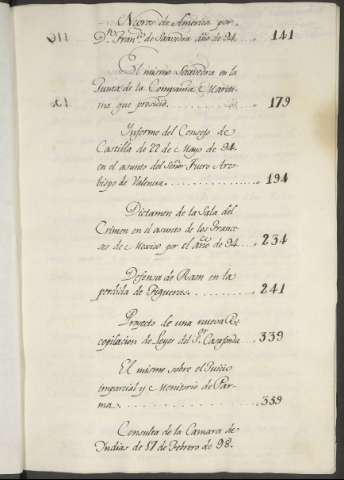 Negros de América por
Dn. Franco. de Saavedra año de 94. .... 141
El mismo Saavedra en la
Junta de la Compañia Mariti-
ma que presidió. .......... 179
Informe del Consejo de
Castilla de 22 de Mayo de 94.
en el asunto del Señor Fuero Arzo-
bispo de Valencia. .......... 194
Dictamen de la Sala del
Crimen en el asunto de los France-
ses de Mexico por el año de 94 .. 234
Defensa de Raon en la
perdida de Figueras. .......... 241
Proyecto de una nueva Re-
copilacion de Leyes del Sr. Casafonda .. 339
El mismo sobre el Juicio
imparcial y Monitorio de Par-
ma. .......... 359
Consulta de la Camara de
Indias de 17 de Febrero de 98.